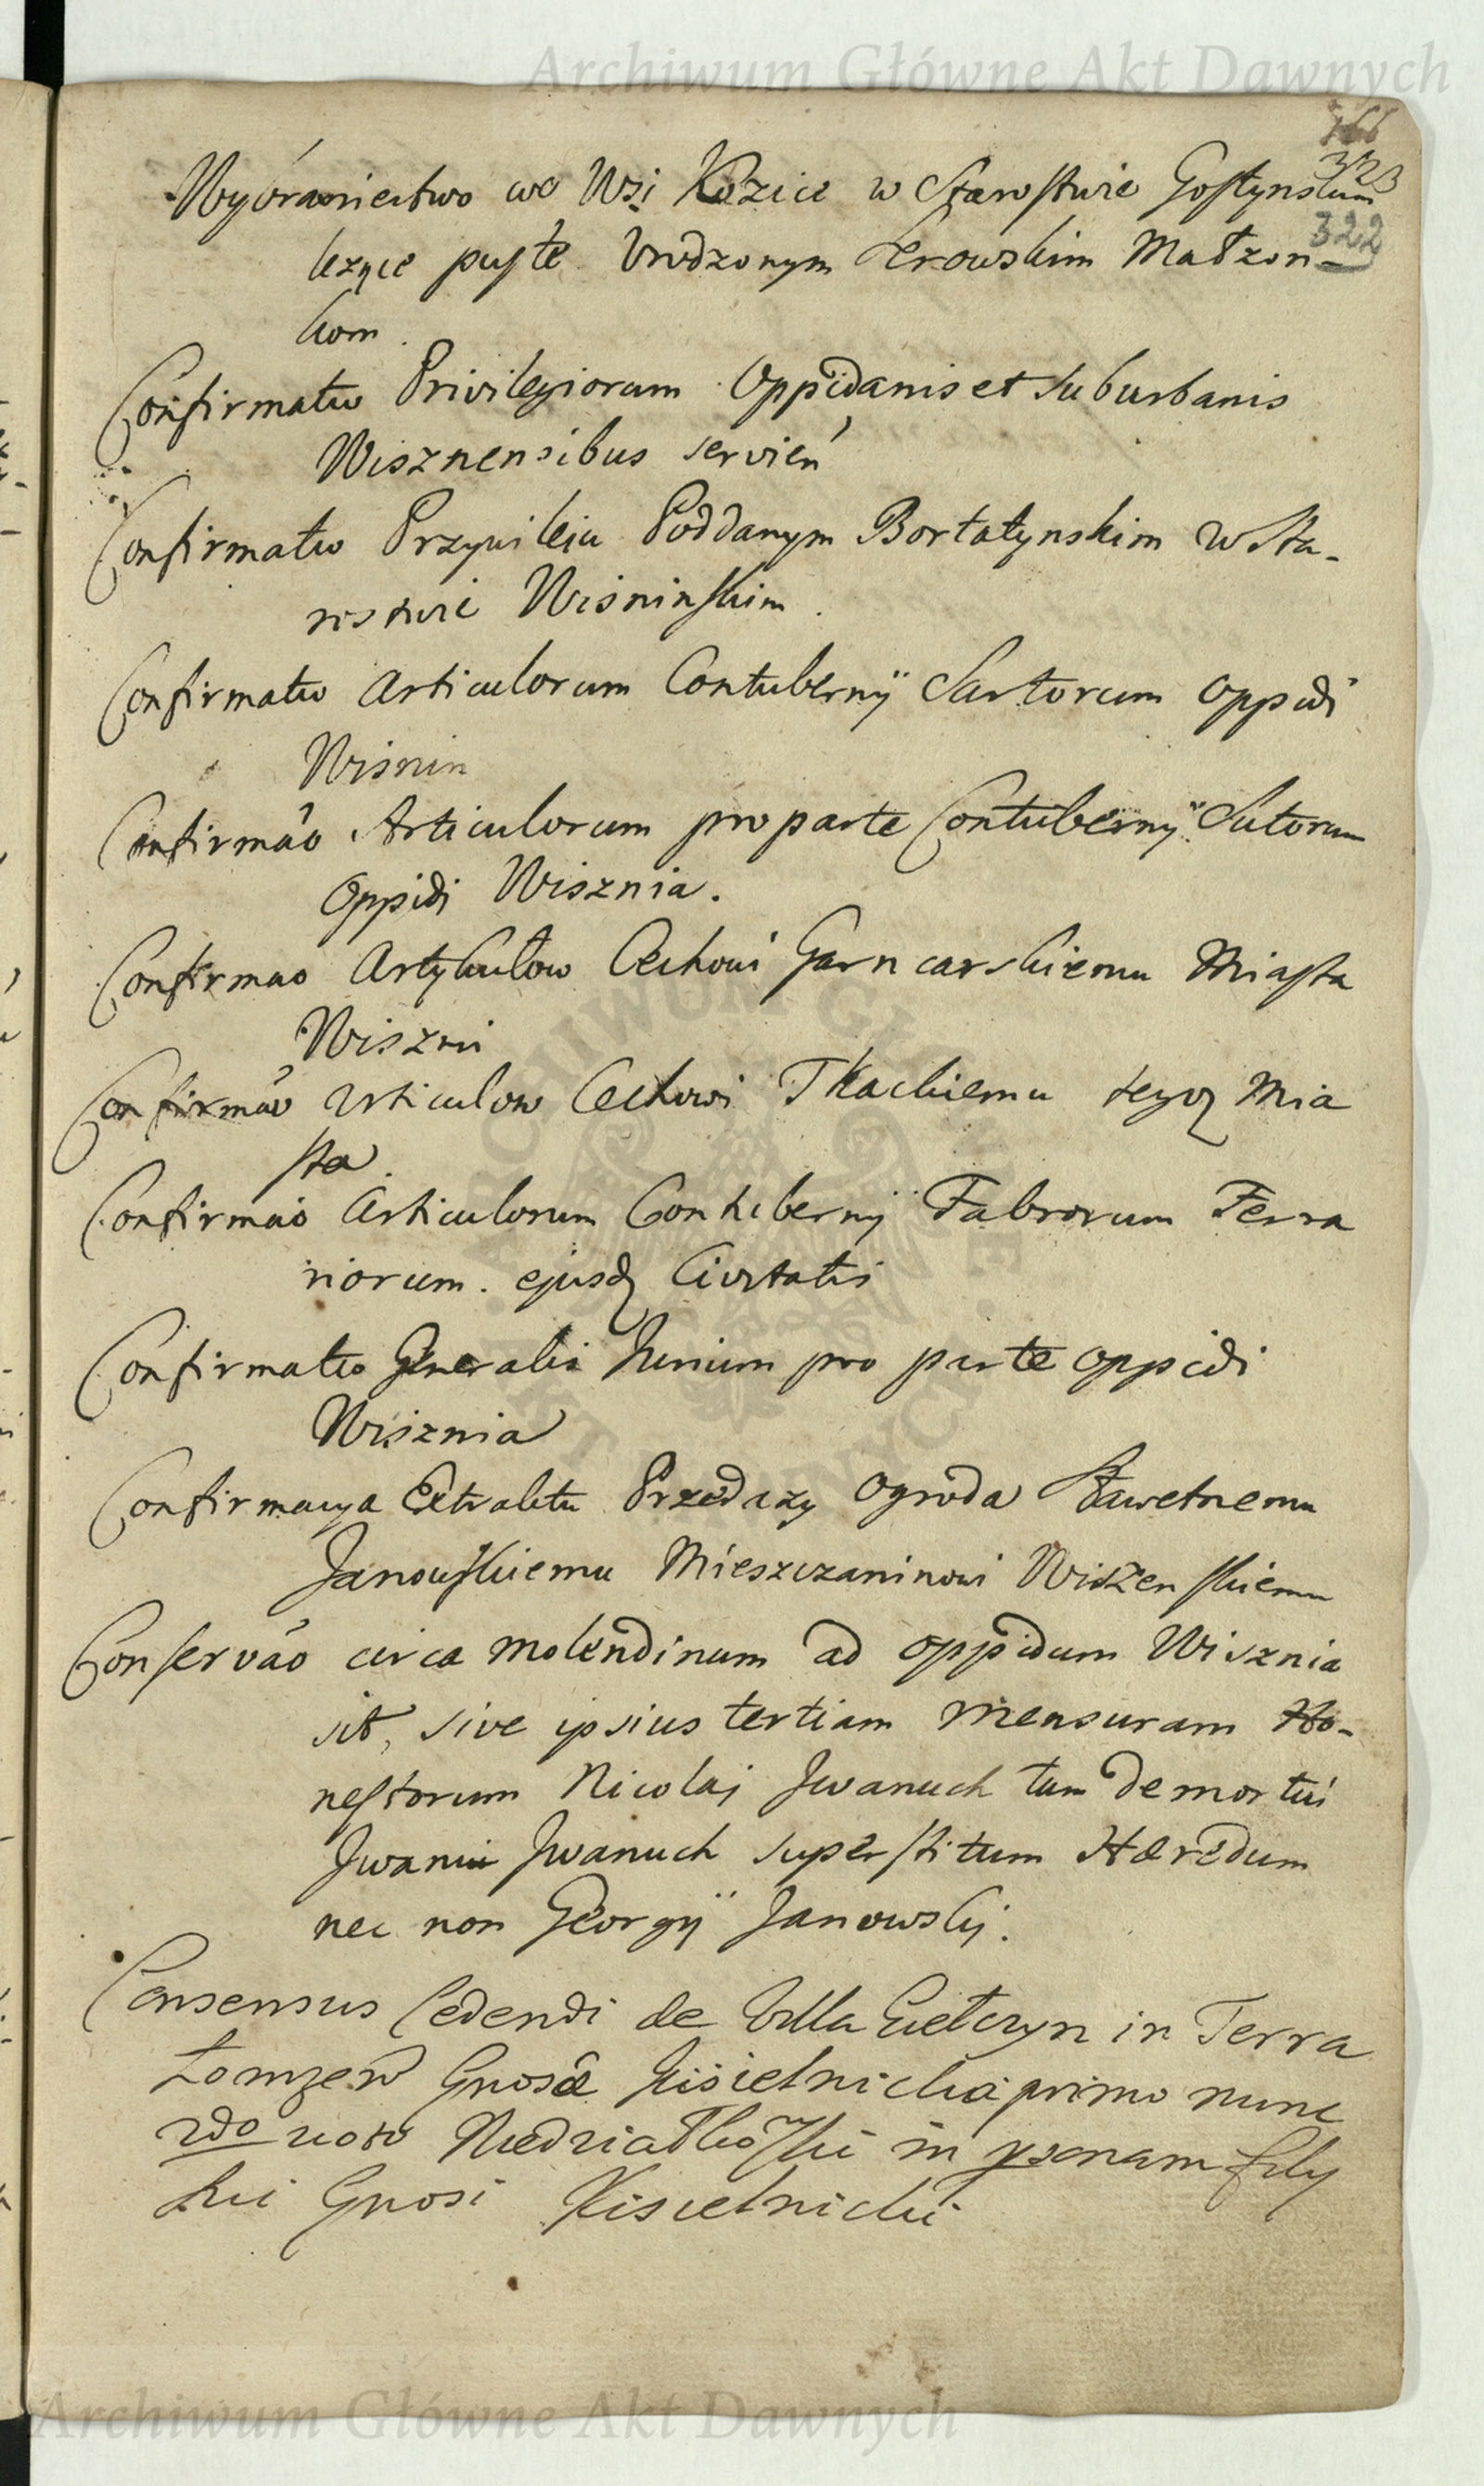 Archiwum Główne Akt Dawnych
166
323
Wybraniectwo we Wsi Kozice w Starostwie Gostynskim
322
lezące puste Urodzonym Zerowskim Małzon-
kom.
Confirmatio Privilegiorum Oppidanis et suburbanis
Wisznensibus servien
Confirmatio Przywileiu Poddanym Bortatynskim w Sta-
rostwie Wisninskim.
Confirmatio Articulorum Contubernij Sartorum Oppidi
Wisnin
Confirmao Articulorum pro parte Contubernij Sutorum
Oppidi Wisznia.
Confirmao Artykułow Cechowi Garncarskiemu Miasta
Wiszni
Confirmao Articulow Cechowi Tkackiemu tegoz Mia
sta.
Confirmao Articulorum Contubernij Fabrorum Ferra
riorum. ejusd Civitatis
Confirmatio Generalis Jurium pro parte oppidi
Wisznia
Confirmacya Extraktu Przedazy Ogroda Sławetnemu
Janowskiemu Mieszczaninowi Wiszenskiemu
Conservao circa molendinum ad oppidum Wisznia
sit, sive ipsius tertiam mensuram Ho-
nestorum Nicolai Iwanuch tum demortui
Iwani Iwanuch superstitum Hæredum
nec non Georgij Janowski.
Consensus Cedendi de Villa Giełczyn in Terra
Łomzen Gnosæ Kisielnicka primo nunc
2do voto in psonam filij
sui Gnosi Kisielnicki
Archiwum Główne Akt Dawnych